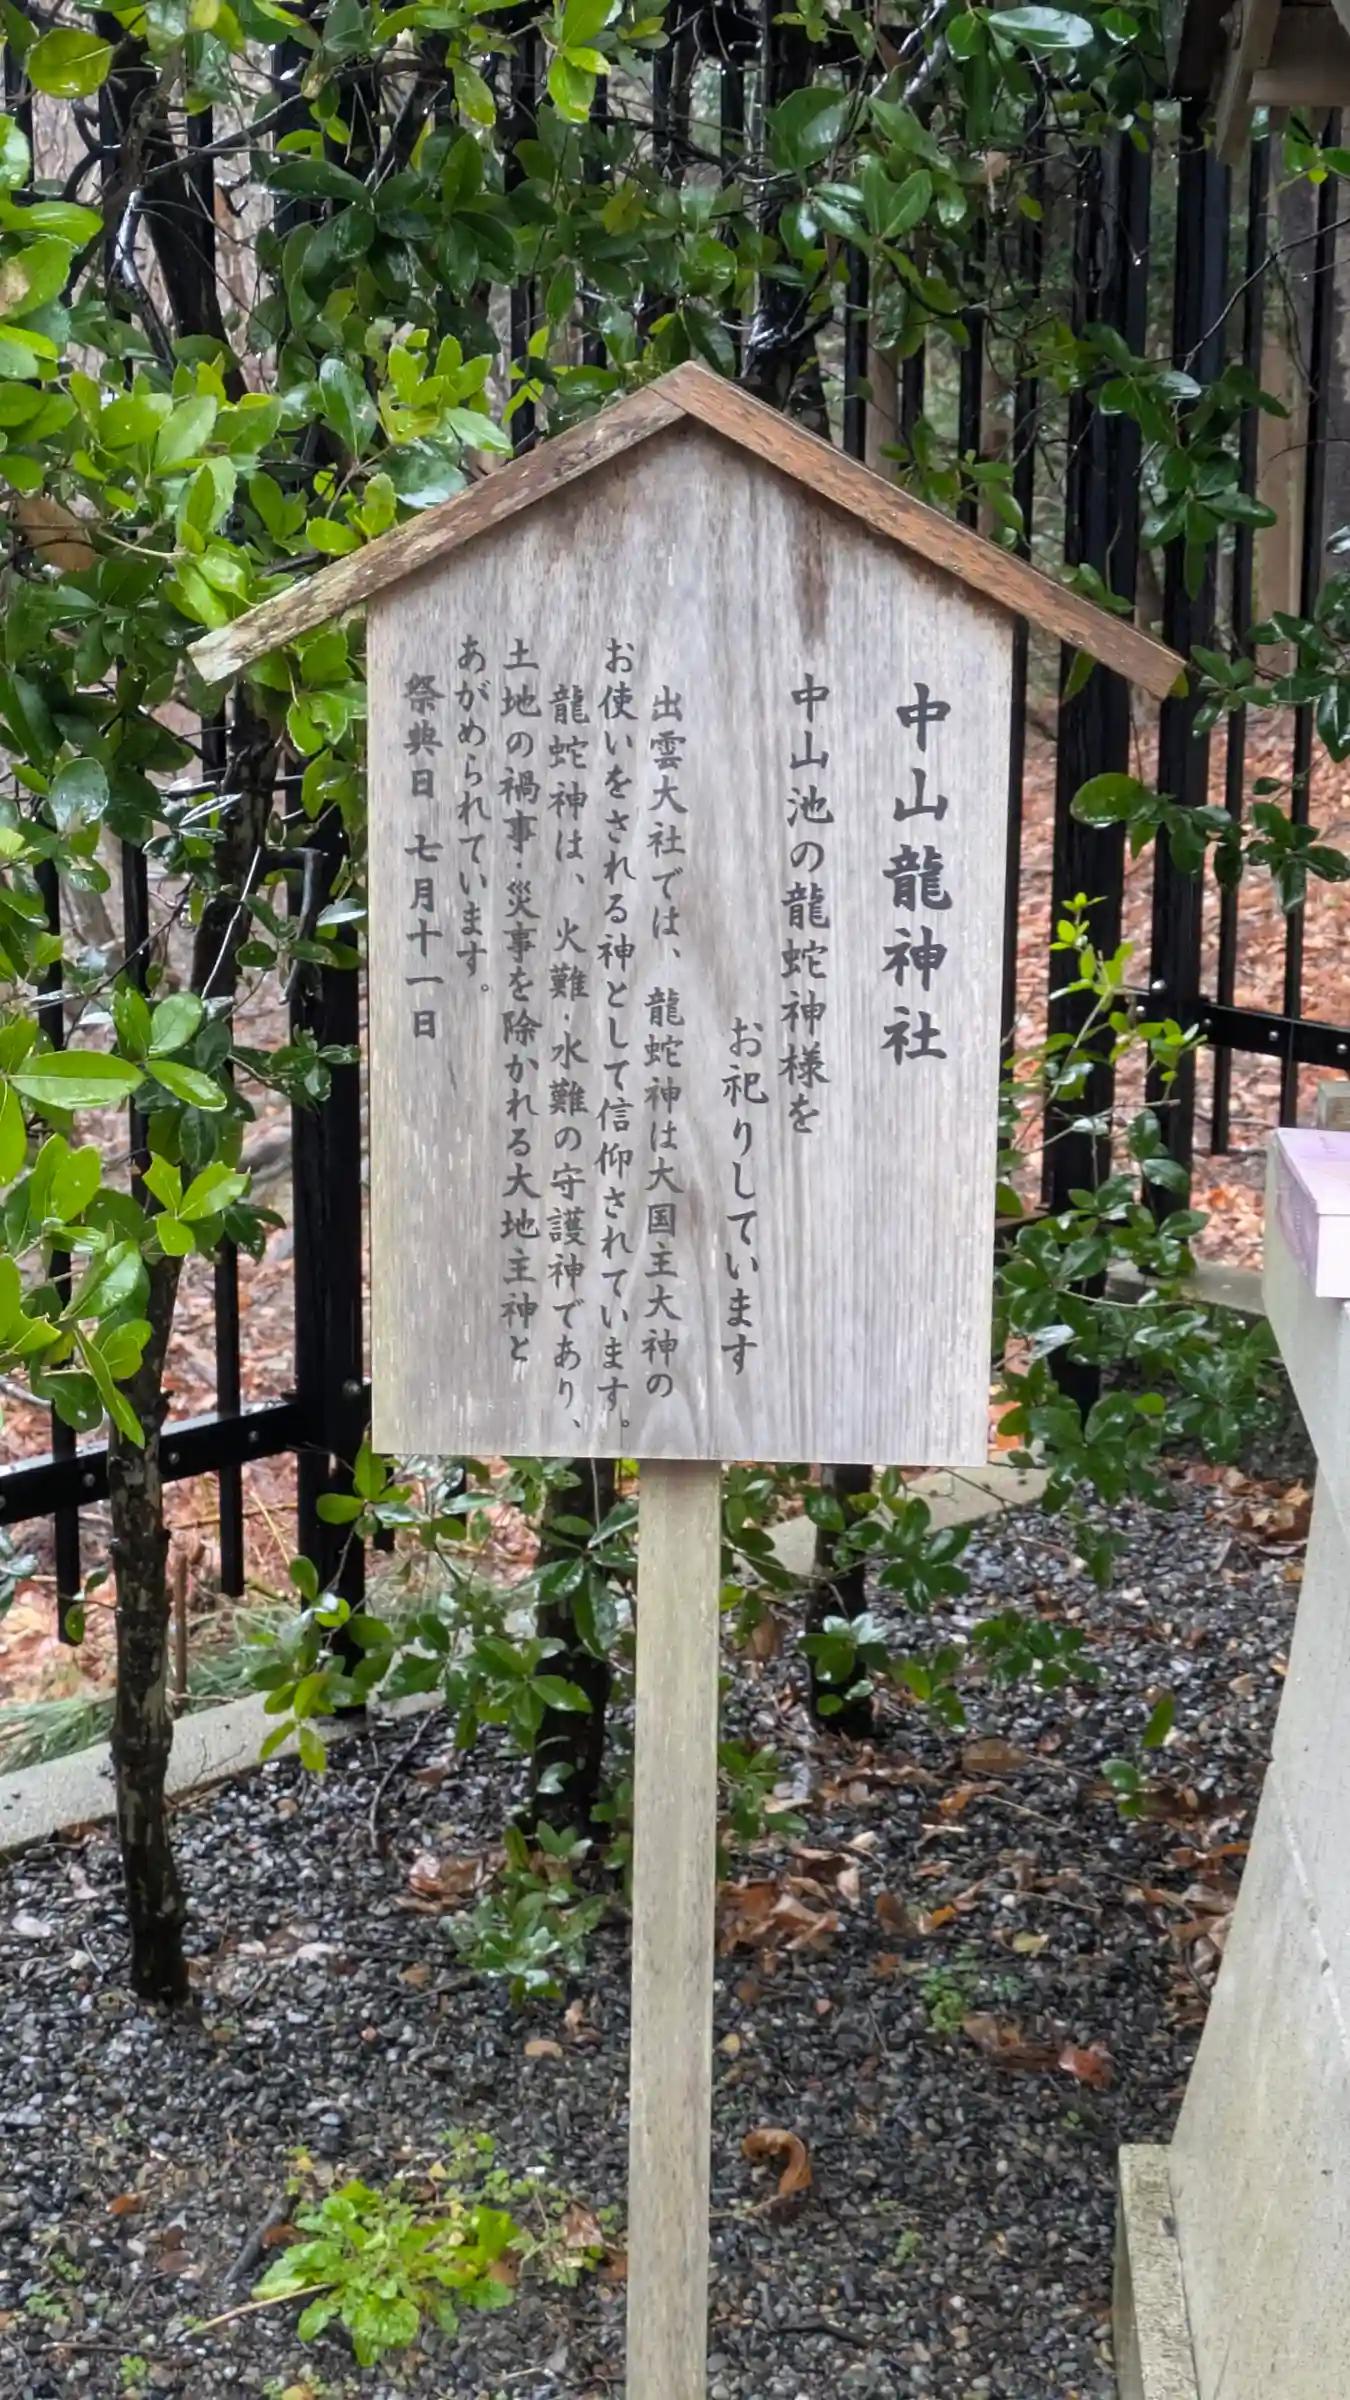 中山龍神社
中山池の龍蛇神様を
お祀りしています
出雲大社では、龍蛇神は大国主大神の
お使いをされる神として信仰されています。
龍蛇神は、火難・水難の守護神であり、
土地の禍事・災事を除かれる大地主神と
あがめられています。
祭典日 七月十一日